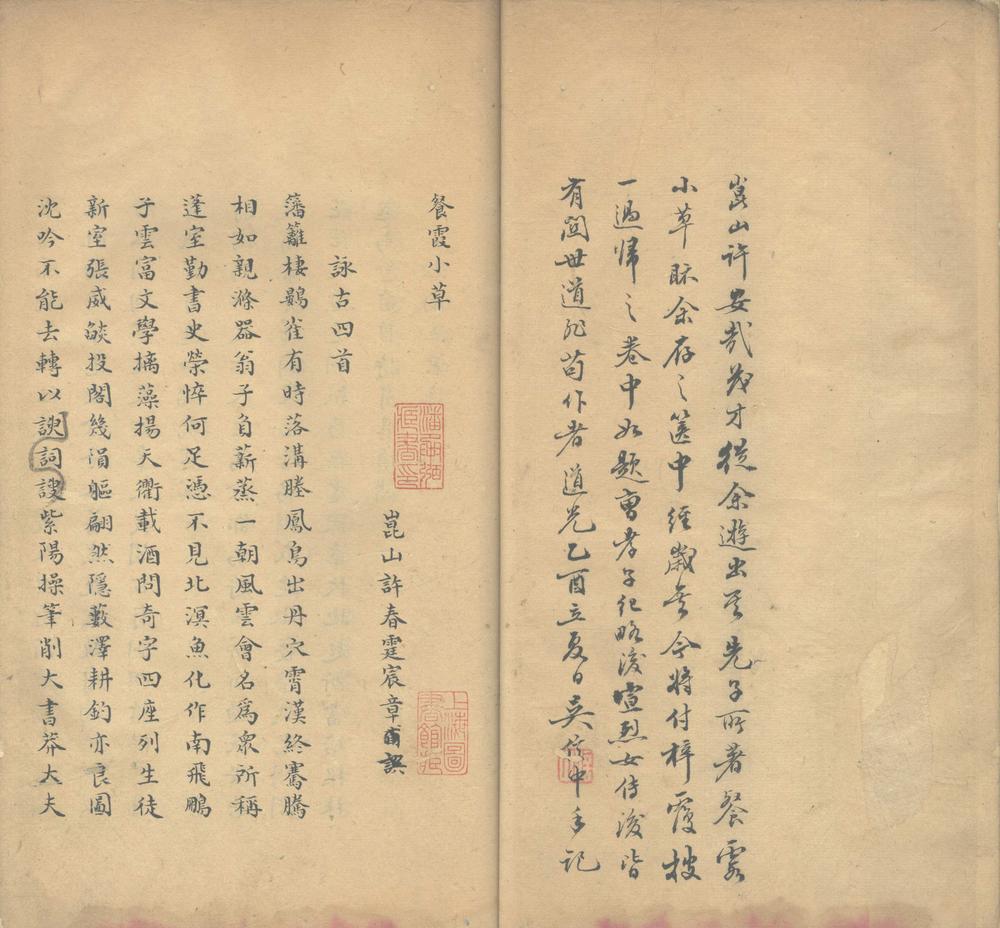 崑山許安哉茂才從余遊出其先子所著餐霞
小草眎余存之篋中經歲矣今將付梓覆校
一過歸之卷中如題曹孝子紀略後壇烈女傳後皆
有關世道非苟作者道光乙酉立夏日吳信中手記
餐霞小草
潘承弼
藏書印
崑山許春霆宸章甫譔
上海圖
書館藏
詠古四首
藩籬棲鷃雀有時落溝塍鳳鳥出丹穴霄漢終騫騰
相如親滌器翁子自薪蒸一朝風雲會名爲衆所稱
蓬室勤書史榮悴何足憑不見北溟魚化作南飛鵬
子雲富文學摛藻揚天衢載酒問奇字四座列生徒
新室張威燄投閣幾隕軀翩然隱藪澤耕釣亦良圖
沈吟不能去轉以諛詞謏紫陽操筆削大書莽大夫